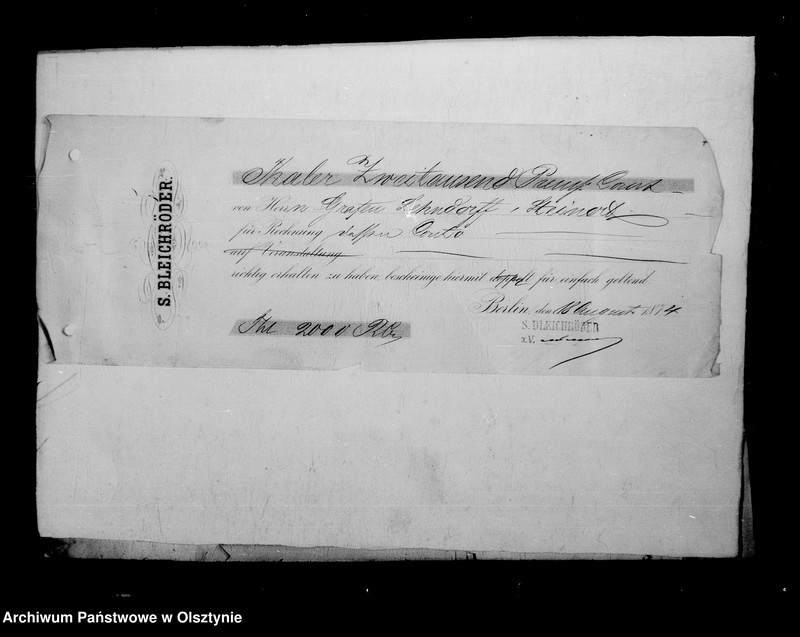 S. BLEICHRÖDER.
Thaler Zweitausend Preuß. Court
von Herrn Grafen Lehndorff, Steinort
für Rechnung dessen Conto
auf Veranstaltung
richtig erhalten zu haben, bescheinige hiermit doppelt für einfach geltend
Berlin, den August 1874
Thl 2000
S. BLEICHRÖDER
Archiwum Państwowe w Olsztynie